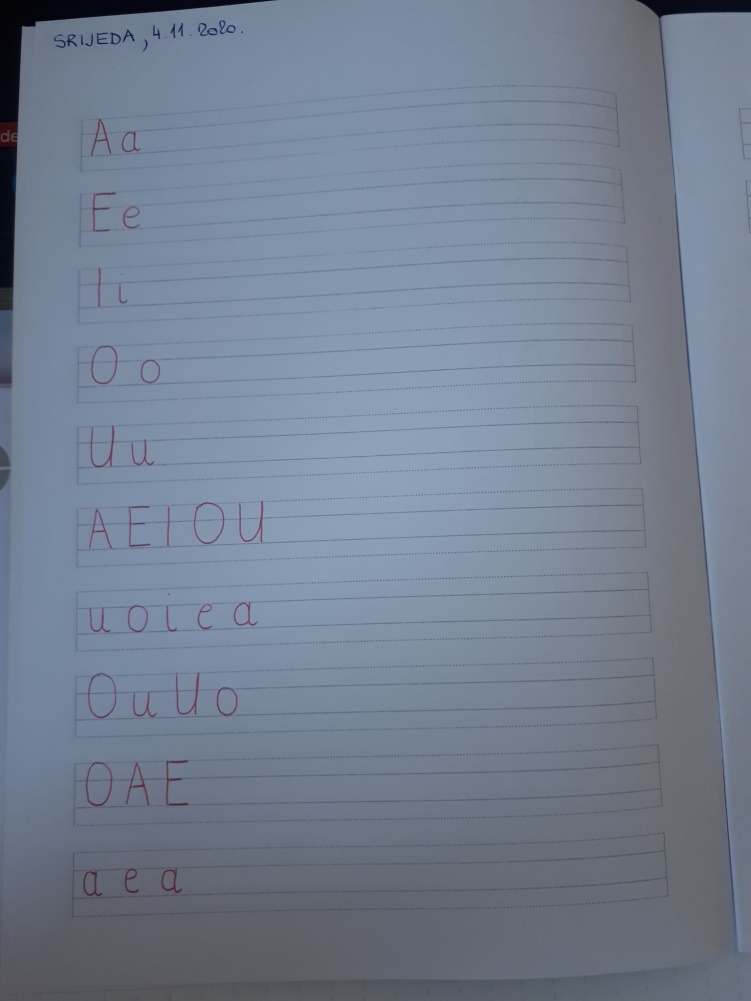 SRIJEDA, 4.11.2020.
de
A a
E e
I i
O o
U u
A E I O U
u o i e a
O u U o
O A E
a e a